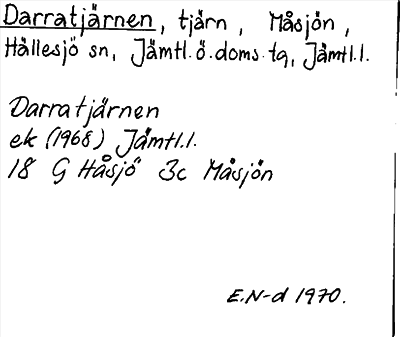 Darratjärnen, tjärn, Måsjön,
Hällesjö sn, Jämtl.ö.doms.tg, Jämtl.l.
Darratjärnen
ek (1968) Jämtl.l.
18 G Håsjö 3c Måsjön
E.N-d 1970.